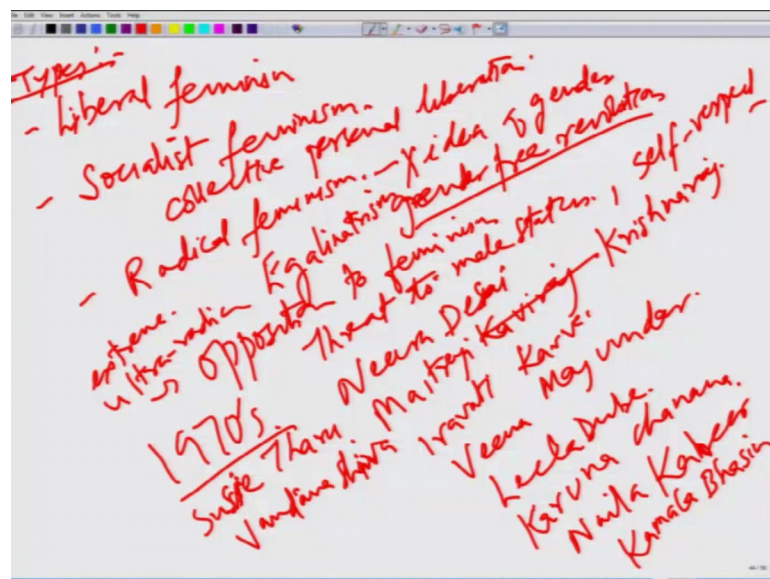 File Edit View Insert Actions Tools Help
Types:-
- Liberal feminism
- Socialist feminism.
collective personal liberation.
- Radical feminism. - X idea of gender
Egalinatrism gender free revolution
extreme.
ultra-radian
opposition to feminism
Threat to male status., self-respect -
1970s. Neera Desai
Susie Tharu. Maitreyi Kaviraj Krishnaraj.
Vandana Shiva Iravati Karve.
Veena Mayunder.
Leela Dube.
Karuna Chanana.
Naila Kabeer
Kamala Bhasin